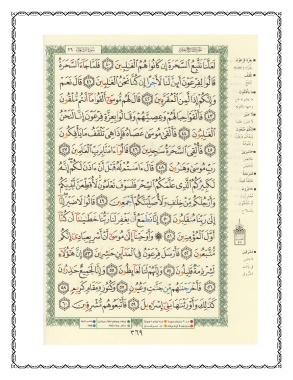 الجُزءُ التَّاسِعَ عَشَرَ سُورَةُ الشُّعَرَاءِ ٢٦
لَعَلَّنَا نَتَّبِعُ ٱلسَّحَرَةَ إِن كَانُوا۟ هُمُ ٱلْغَـٰلِبِينَ ٤٠ فَلَمَّا جَآءَ ٱلسَّحَرَةُ
قَالُوا۟ لِفِرْعَوْنَ أَئِنَّ لَنَا لَأَجْرًا إِن كُنَّا نَحْنُ ٱلْغَـٰلِبِينَ ٤١ قَالَ نَعَمْ
وَإِنَّكُمْ إِذًا لَّمِنَ ٱلْمُقَرَّبِينَ ٤٢ قَالَ لَهُم مُّوسَىٰٓ أَلْقُوا۟ مَآ أَنتُم مُّلْقُونَ
٤٣ فَأَلْقَوْا۟ حِبَالَهُمْ وَعِصِيَّهُمْ وَقَالُوا۟ بِعِزَّةِ فِرْعَوْنَ إِنَّا لَنَحْنُ
ٱلْغَـٰلِبُونَ ٤٤ فَأَلْقَىٰ مُوسَىٰ عَصَاهُ فَإِذَا هِىَ تَلْقَفُ مَا يَأْفِكُونَ
٤٥ فَأُلْقِىَ ٱلسَّحَرَةُ سَـٰجِدِينَ ٤٦ قَالُوٓا۟ ءَامَنَّا بِرَبِّ ٱلْعَـٰلَمِينَ ٤٧
رَبِّ مُوسَىٰ وَهَـٰرُونَ ٤٨ قَالَ ءَامَنتُمْ لَهُۥ قَبْلَ أَنْ ءَاذَنَ لَكُمْ إِنَّهُۥ
لَكَبِيرُكُمُ ٱلَّذِى عَلَّمَكُمُ ٱلسِّحْرَ فَلَسَوْفَ تَعْلَمُونَ لَأُقَطِّعَنَّ أَيْدِيَكُمْ
وَأَرْجُلَكُم مِّنْ خِلَـٰفٍ وَلَأُصَلِّبَنَّكُمْ أَجْمَعِينَ ٤٩ قَالُوا۟ لَا ضَيْرَ إِنَّآ
إِلَىٰ رَبِّنَا مُنقَلِبُونَ ٥٠ إِنَّا نَطْمَعُ أَن يَغْفِرَ لَنَا رَبُّنَا خَطَـٰيَـٰنَآ أَن كُنَّآ
أَوَّلَ ٱلْمُؤْمِنِينَ ٥١ وَأَوْحَيْنَآ إِلَىٰ مُوسَىٰٓ أَنْ أَسْرِ بِعِبَادِىٓ إِنَّكُم
مُّتَّبَعُونَ ٥٢ فَأَرْسَلَ فِرْعَوْنُ فِى ٱلْمَدَآئِنِ حَـٰشِرِينَ ٥٣ إِنَّ هَـٰٓؤُلَآءِ
لَشِرْذِمَةٌ قَلِيلُونَ ٥٤ وَإِنَّهُمْ لَنَا لَغَآئِظُونَ ٥٥ وَإِنَّا لَجَمِيعٌ حَـٰذِرُونَ
٥٦ فَأَخْرَجْنَـٰهُم مِّن جَنَّـٰتٍ وَعُيُونٍ ٥٧ وَكُنُوزٍ وَمَقَامٍ كَرِيمٍ ٥٨
كَذَٰلِكَ وَأَوْرَثْنَـٰهَا بَنِىٓ إِسْرَٰٓءِيلَ ٥٩ فَأَتْبَعُوهُم مُّشْرِقِينَ ٦٠
٣٦٩